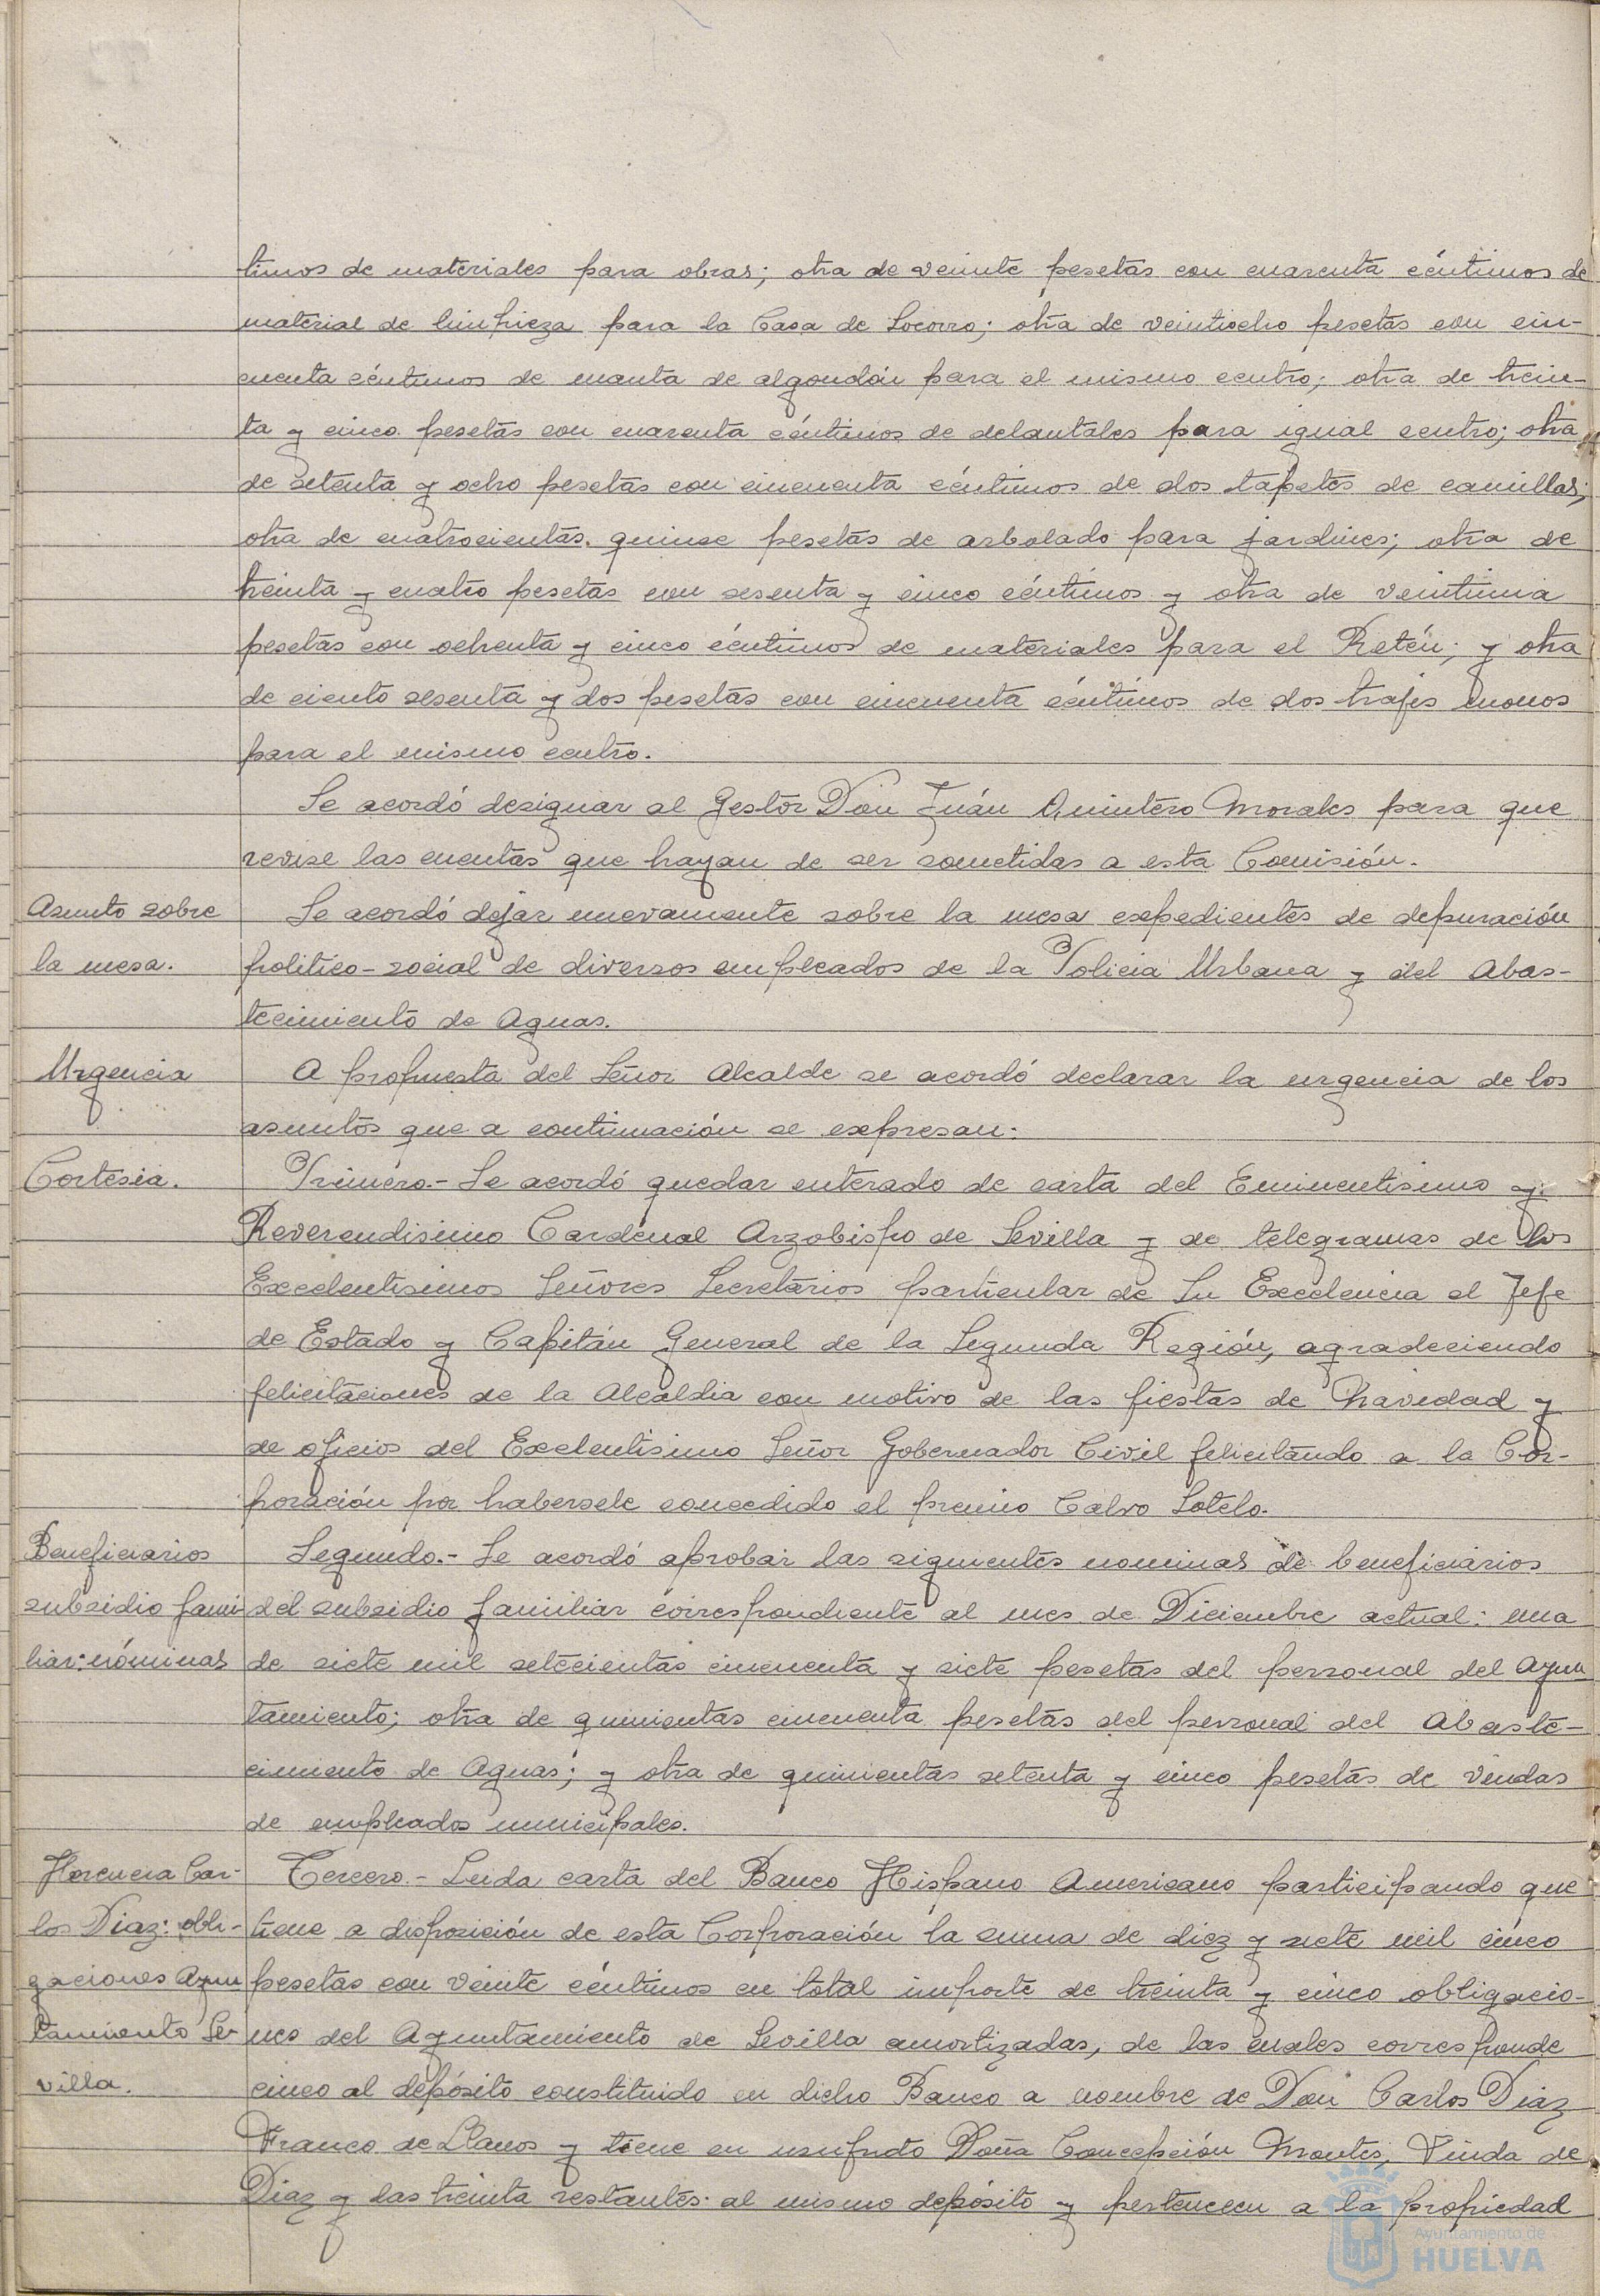 timos de materiales para obras; otra de veinte pesetas con cuarenta céntimos de
material de limpieza para la Casa de Socorro; otra de veintiocho pesetas con cin-
cuenta céntimos de manta de algondón para el mismo centro; otra de trein-
ta y cinco pesetas con cuarenta céntimos de delantales para igual centro; otra
de setenta y ocho pesetas con cincuenta céntimos de dos tapetes de camillas;
otra de cuatrocientas quince pesetas de arbolado para jardines; otra de
treinta y cuatro pesetas con sesenta y cinco céntimos y otra de veintiuna
pesetas con ochenta y cinco céntimos de materiales para el Retén; y otra
de ciento sesenta y dos pesetas con cincuenta céntimos de dos trajes monos
para el mismo centro.
Se acordó designar al Gestor Don Juán Quintero Morales para que
revise las cuentas que hayan de ser sometidas a esta Comisión.
Asunto sobre
la mesa.
Se acordó dejar nuevamente sobre la mesa expedientes de depuración
politico-social de diversos empleados de la Policia Urbana y del Abas-
tecimiento de Aguas.
Urgencia
A propuesta del Señor Alcalde se acordó declarar la urgencia de los
asuntos que a continuación se expresan:
Cortesia.
Primero.- Se acordó quedar enterado de carta del Eminentisimo y
Reverendisimo Cardenal Arzobispo de Sevilla y de telegramas de los
Excelentisimos Señores Secretarios particular de Su Excelencia el Jefe
de Estado y Capitán General de la Segunda Región, agradeciendo
felicitaciones de la Alcaldia con motivo de las fiestas de Navidad y
de oficios del Excelentisimo Señor Gobernador Civil felicitando a la Cor-
poración por habersele concedido el premio Calvo Sotelo.
Beneficiarios
subsidio fami
liar: nóminas
Segundo.- Se acordó aprobar las siguientes nominas de beneficiarios
del subsidio familiar correspondiente al mes de Diciembre actual: una
de siete mil setecientas cincuenta y siete pesetas del personal del Ayun
tamiento; otra de quinientas cincuenta pesetas del personal del Abaste-
cimiento de Aguas; y otra de quinientas setenta y cinco pesetas de viudas
de empleados municipales.
Herencia Car-
los Diaz: obli-
gaciones Ayun
tamiento Se-
villa.
Tercero.- Leida carta del Banco Hispano Americano participando que
tiene a disposición de esta Corporación la suma de diez y siete mil cinco
pesetas con veinte céntimos en total importe de treinta y cinco obligacio-
nes del Ayuntamiento de Sevilla amortizadas, de las cuales corresponde
cinco al depósito constituido en dicho Banco a nombre de Don Carlos Diaz
Franco de Llanos y tiene en usufruto Doña Concepción Montes, Viuda de
Diaz y las treinta restantes al mismo depósito y pertenecen a la propiedad
Ayuntamiento de
HUELVA